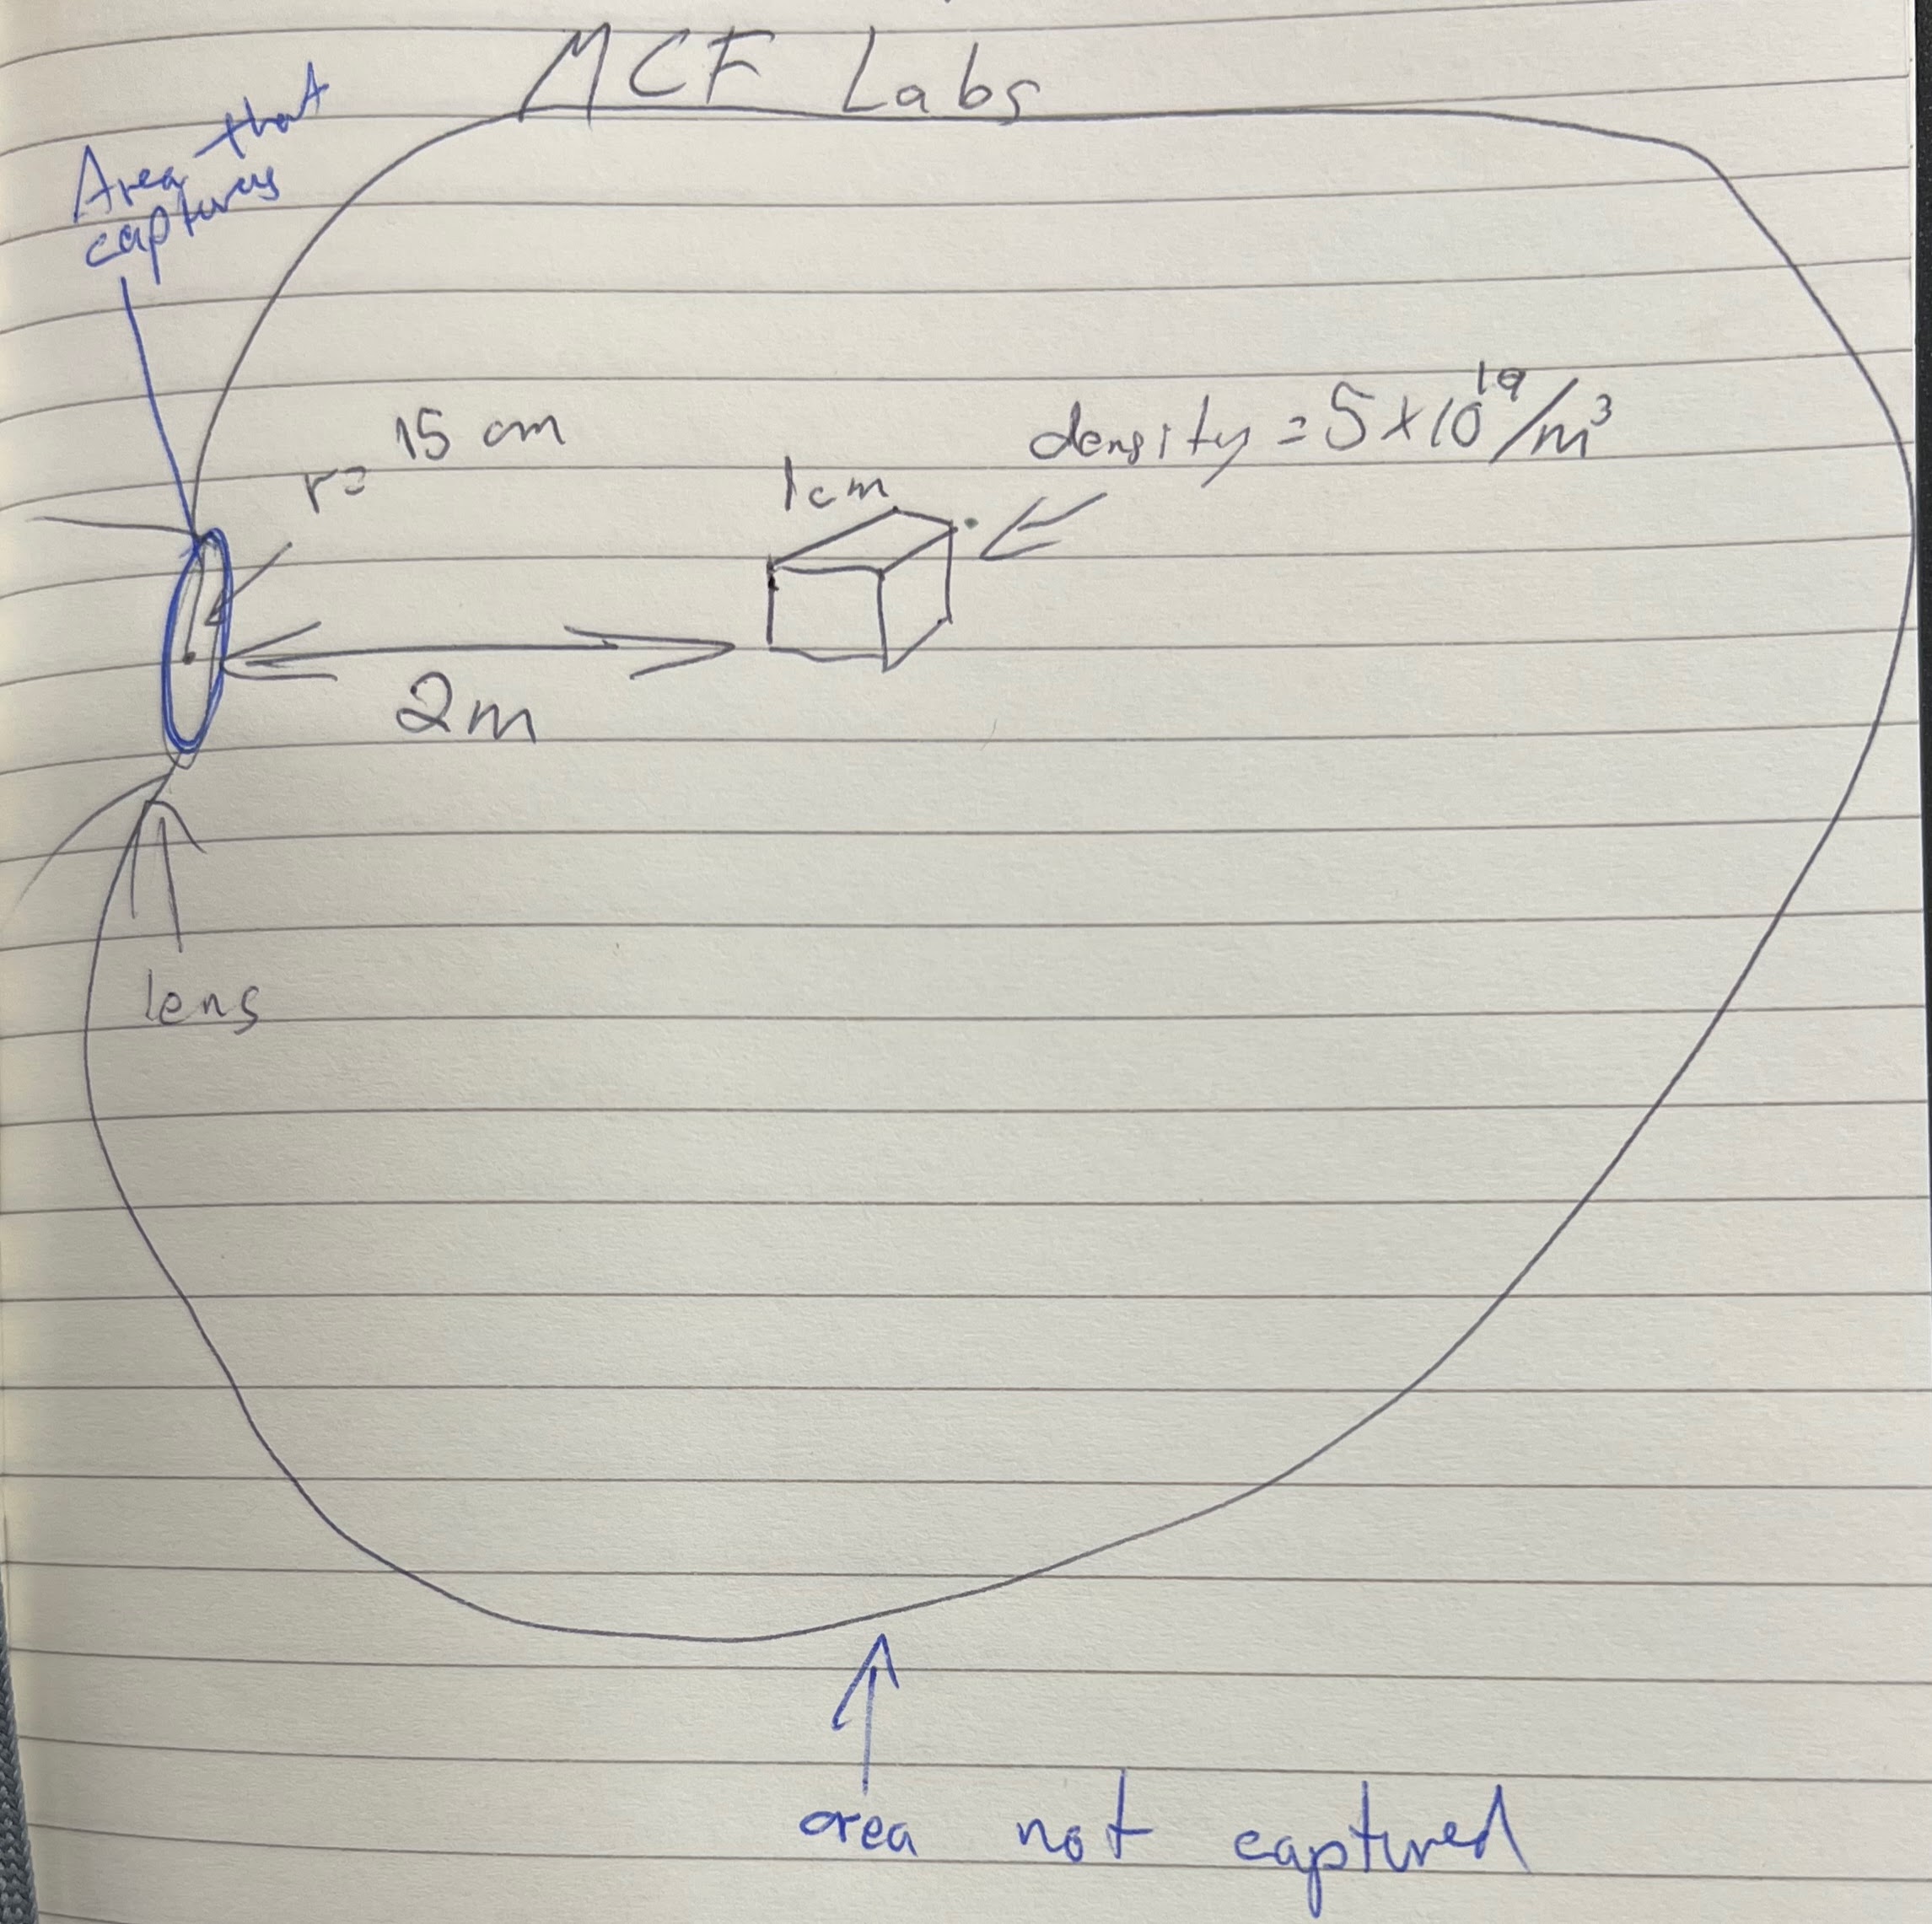 MCF Labs
Area that
captures
r= 15 cm
1cm
density = 5×10¹⁹/m³
2m
lens
area not captured